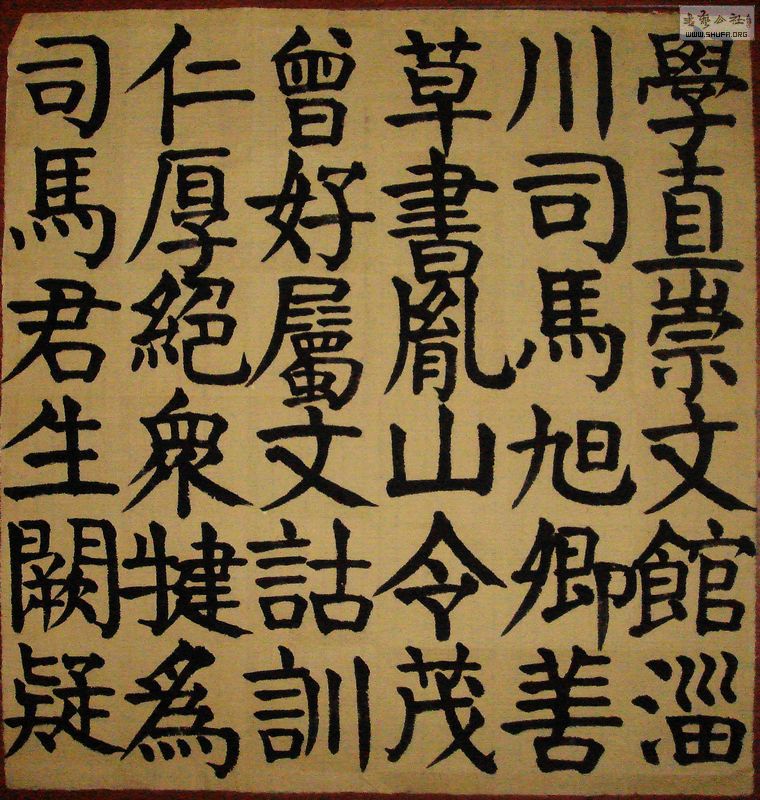 學直崇文館淄
川司馬旭卿善
草書胤山令茂
曾好屬文詁訓
仁厚絕衆犍為
司馬君生闕疑
WWW.SHUFA.ORG